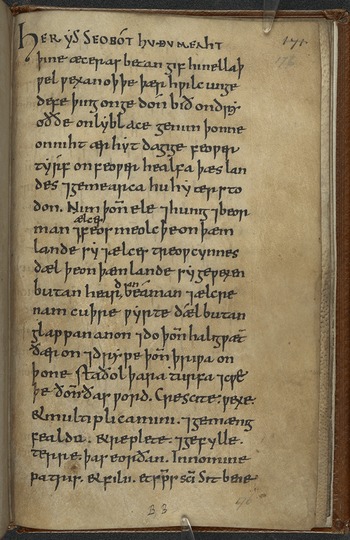 HER YS SEO BÓT HU ÐU MEAHT
171
176
þine æceras betan gif hi nellaþ
wel wexan oþþe þær hwilc unge
defe þing on gedón bið on drẏ
oððe on lẏblace genim þonne
on niht ær hẏt dagige feower
tẏrf on feower healfa þæs lan
des ⁊ gemearca hu hẏ ær sto
don. Nim þoñ ele ⁊ hunig ⁊ beor
man ⁊ ælces feos meolc þe on þæm
lande sẏ ⁊ ælces treowcẏnnes
dæl þe on þæm lande sẏ gewexen
butan heardan beaman ⁊ ælcre
nam cuþre wẏrte dæl butan
glappan anon ⁊ do þoñ haligwæt̄
ðær on ⁊ drẏpe þoñ þriwa on
þone staðol þara turfa ⁊ cweþe
ðoñ ðas word. Crescite. wexe.
& multiplicamini. ⁊ gemænig
fealda. & replete. ⁊ gefylle.
terre. þas eorðan. In nomine
patris. & filii. et sp̄s sc̄i Sit bene
B 3